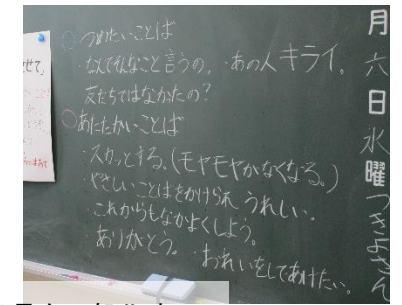 月 六日 水曜 つきよさん
つめたいことば
・なんでそんなこと言うの。・あの人キライ。
友だちではなかたの？
あたたかいことば
・スカッとする。（モヤモヤがなくなる。）
・やさしいことばをかけられ うれしい。
・これからもなかよくしよう。
・ありがとう。・おれいをしてあげたい。
せて」